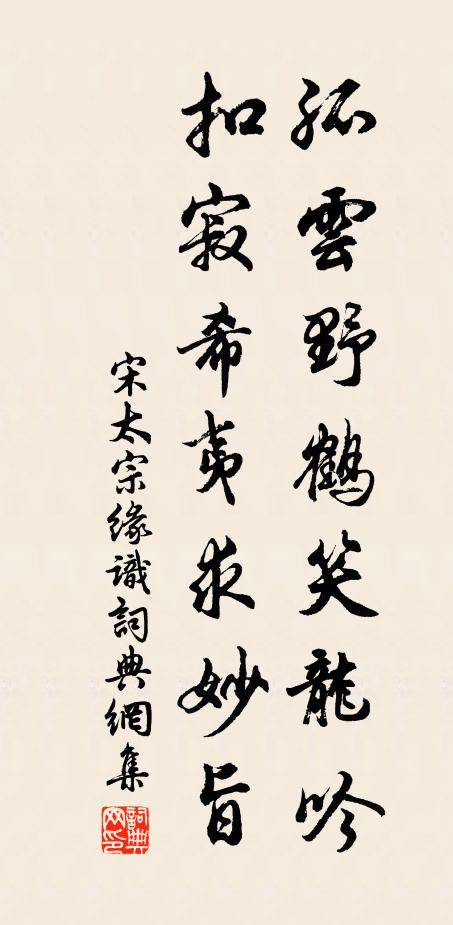 孤雲野鶴笑龍吟
扣寂希夷求妙旨
宋太宗緣識詞典網集
詞典網印